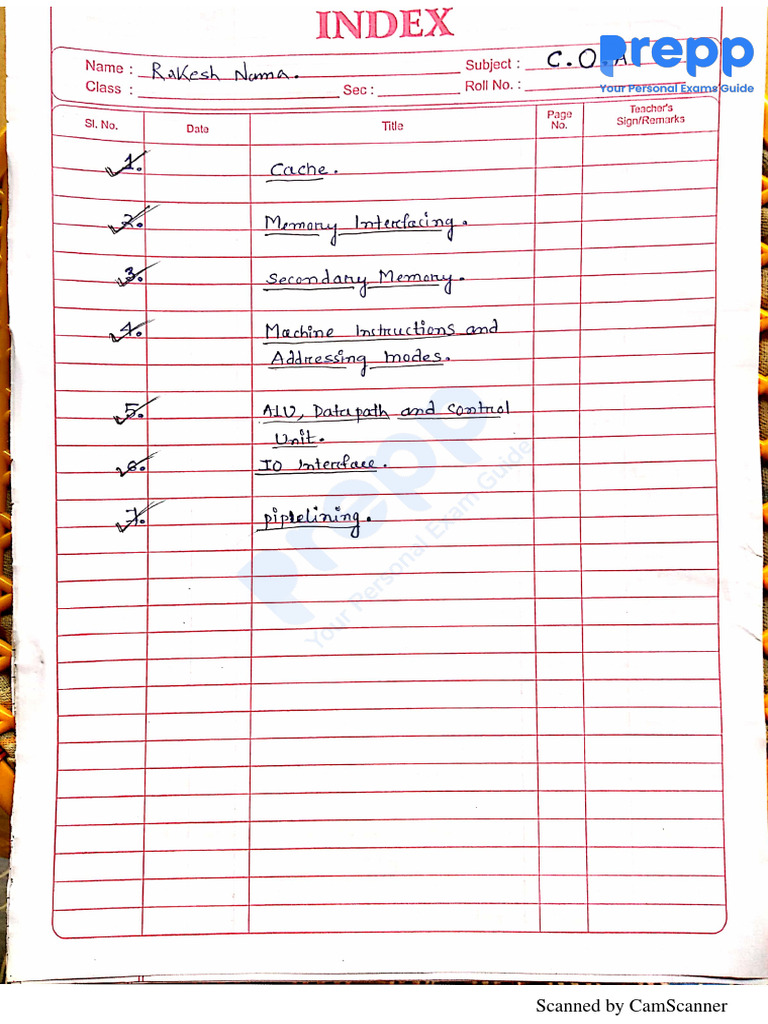 INDEX
prepp
Your Personal Exams Guide
Name : Rakesh Nama. Subject : C.O.A
Class : Sec : Roll No. :
Sl. No. Date Title Page No. Teacher's Sign/Remarks
1. Cache.
2. Memory Interfacing.
3. Secondary Memory.
4. Machine Instructions and
Addressing modes.
5. ALU, Datapath and control
Unit.
6. IO Interface.
7. pipelining.
prepp
Your Personal Exam Guide
Scanned by CamScanner